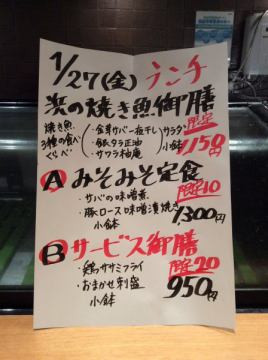 1/27(金) ランチ
浜の焼き魚御膳
焼き魚
3種の食べ
くらべ
・金華サバ一夜干し
・銀ダラ正油
・サワラ柚庵
サラダ
小鉢
限定
1,150円
A みそみそ定食
限定10
・サバの味噌煮
・豚ロース味噌漬焼き
小鉢
1,300円
B サービス御膳
限定20
・鶏ササミフライ
・おまかせ刺盛
小鉢
950円